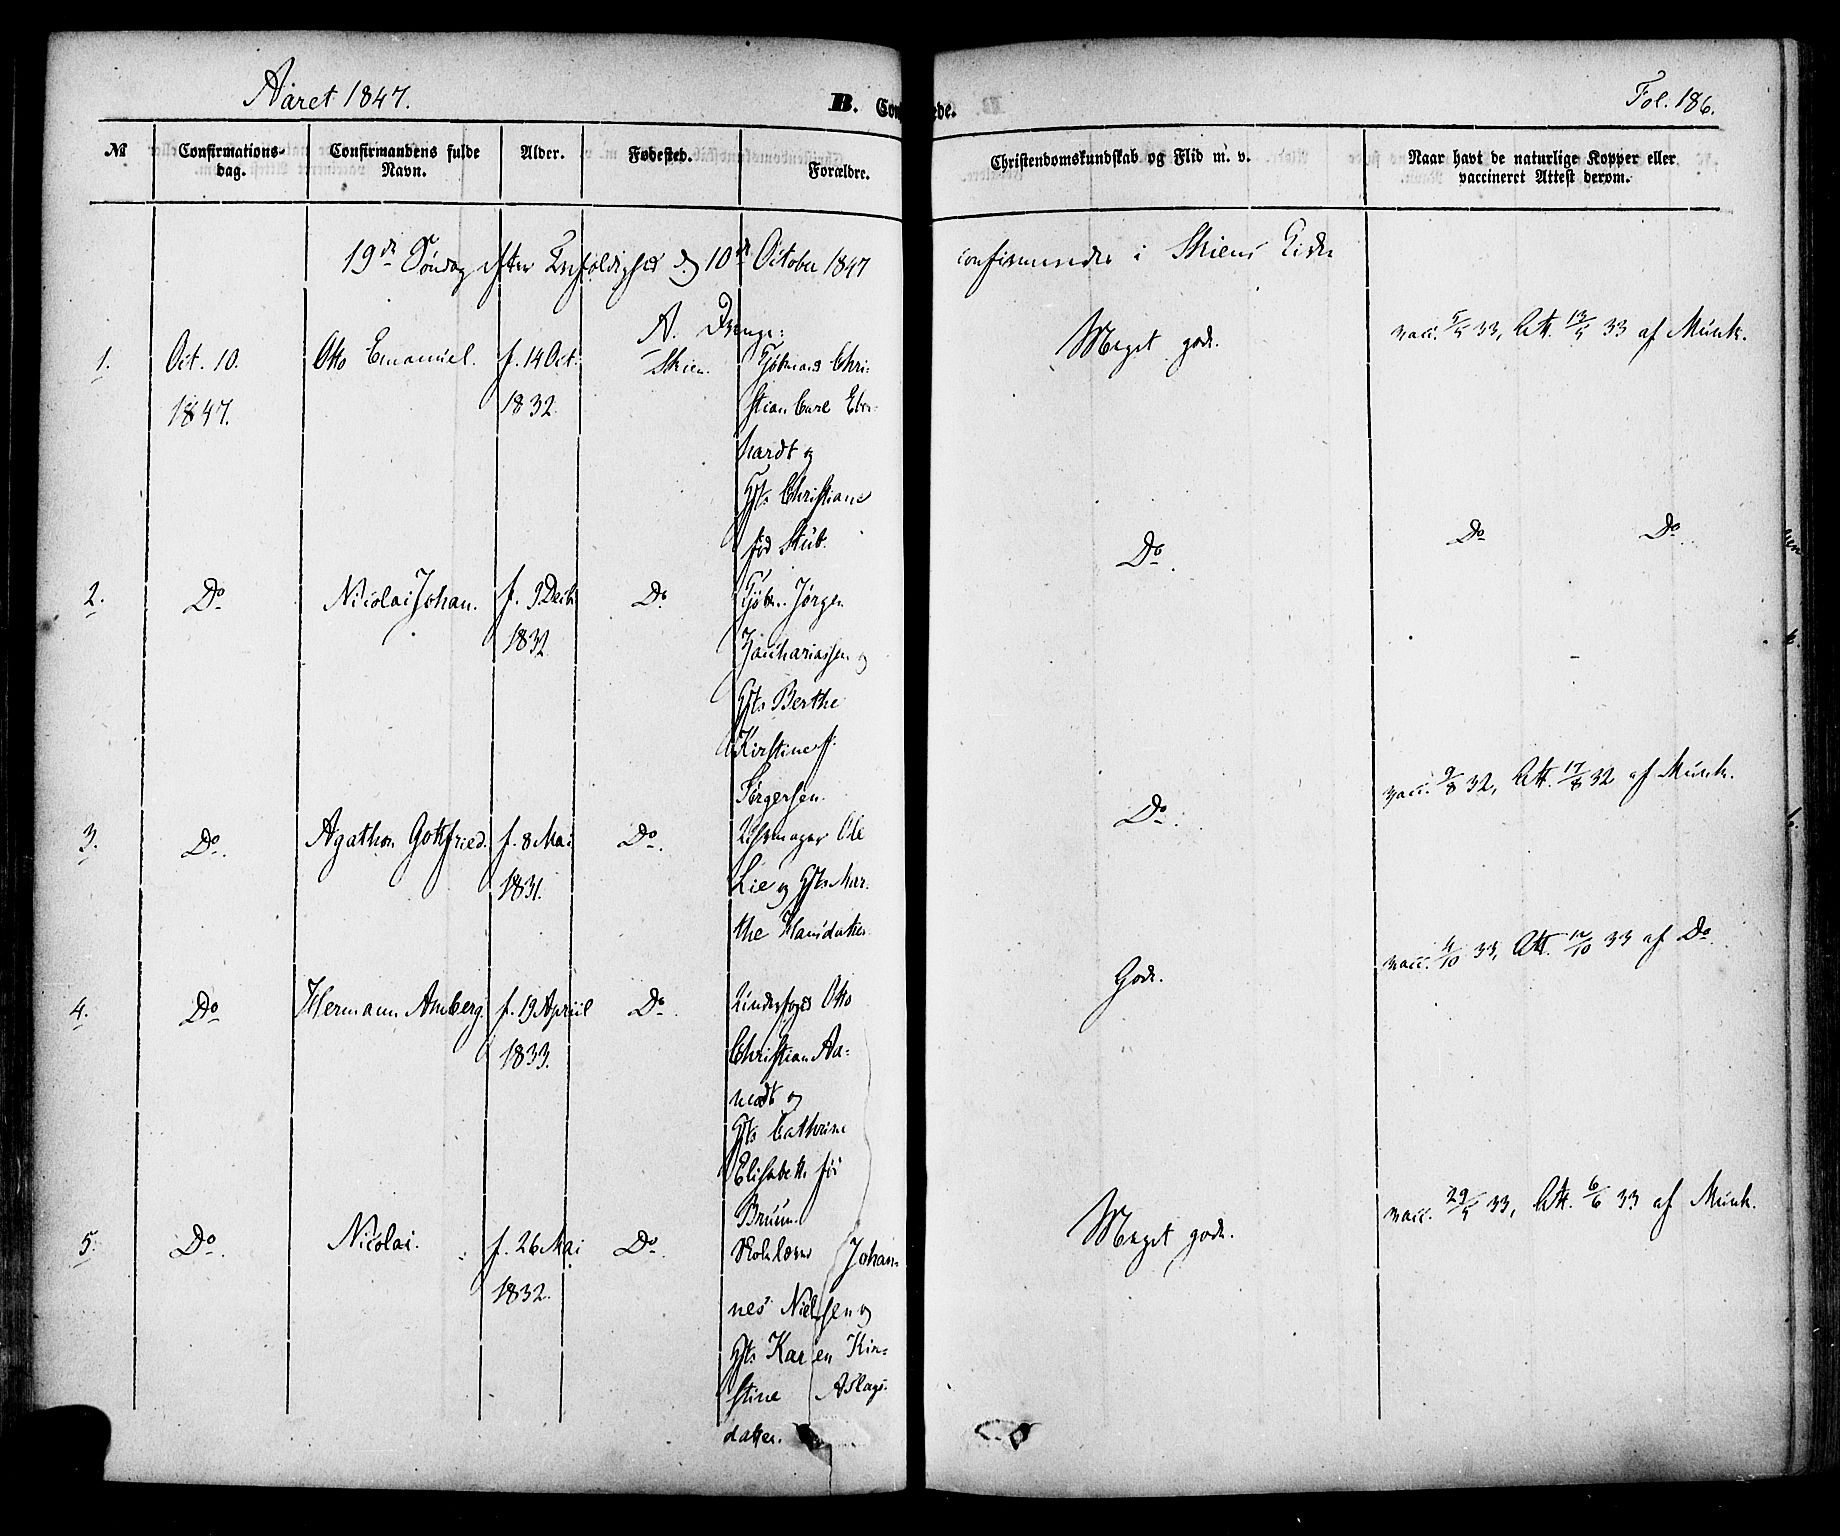 Aaret 1847.
B. Con ede.
Fol. 186.
№ Confirmations-dag. Confirmandens fulde Navn. Alder. Fødested. Forældre. Christendomskundskab og Flid m. v. Naar havt de naturlige Kopper eller vaccineret Attest derom.
19de Søndag efter Trefoldighed d. 10de October 1847 confirmeredes i Skiens Kirke
A. Drenge:
1. Oct. 10. Otto Emanuel. f. 14 Oct. Skien. Kjøbmand Chri- Meget god. vacc. 5/5 33, Att. 13/5 33 af Munk.
1847. 1832. stian Carl Eber-
hardt og
Hst. Christiane
fød Stub.
2. Do Nicolai Johan. f. 9 Decb. Do Kjøbm. Jørgen Do. Do Do.
1832 Zachariassen og
Hst. Berthe
Kirstine f.
Jørgensen.
3. Do. Agathon Gottfried. f. 8 Mai Do. Uhrmager Ole Do. vacc. 9/8 32, Att. 17/8 32 af Munk.
1831. Lie og Hst. Mar-
the Hansdatter
4. Do Hermann Amberg. f. 19 Apriil Do. Underfoged Otto God. vacc. 4/10 33, Att. 12/10 33 af Do.
1833. Christian Aa-
modt og
Hst. Cathrine
Elisabeth fød
Bruun
5. Do. Nicolai. f. 26 Mai Do. Skolelærer Johan- Meget god. vacc. 29/5 33, Att. 6/6 33 af Munk.
1832. nes Nielsen og
Hst. Karen Kir-
stine Aslags-
datter.